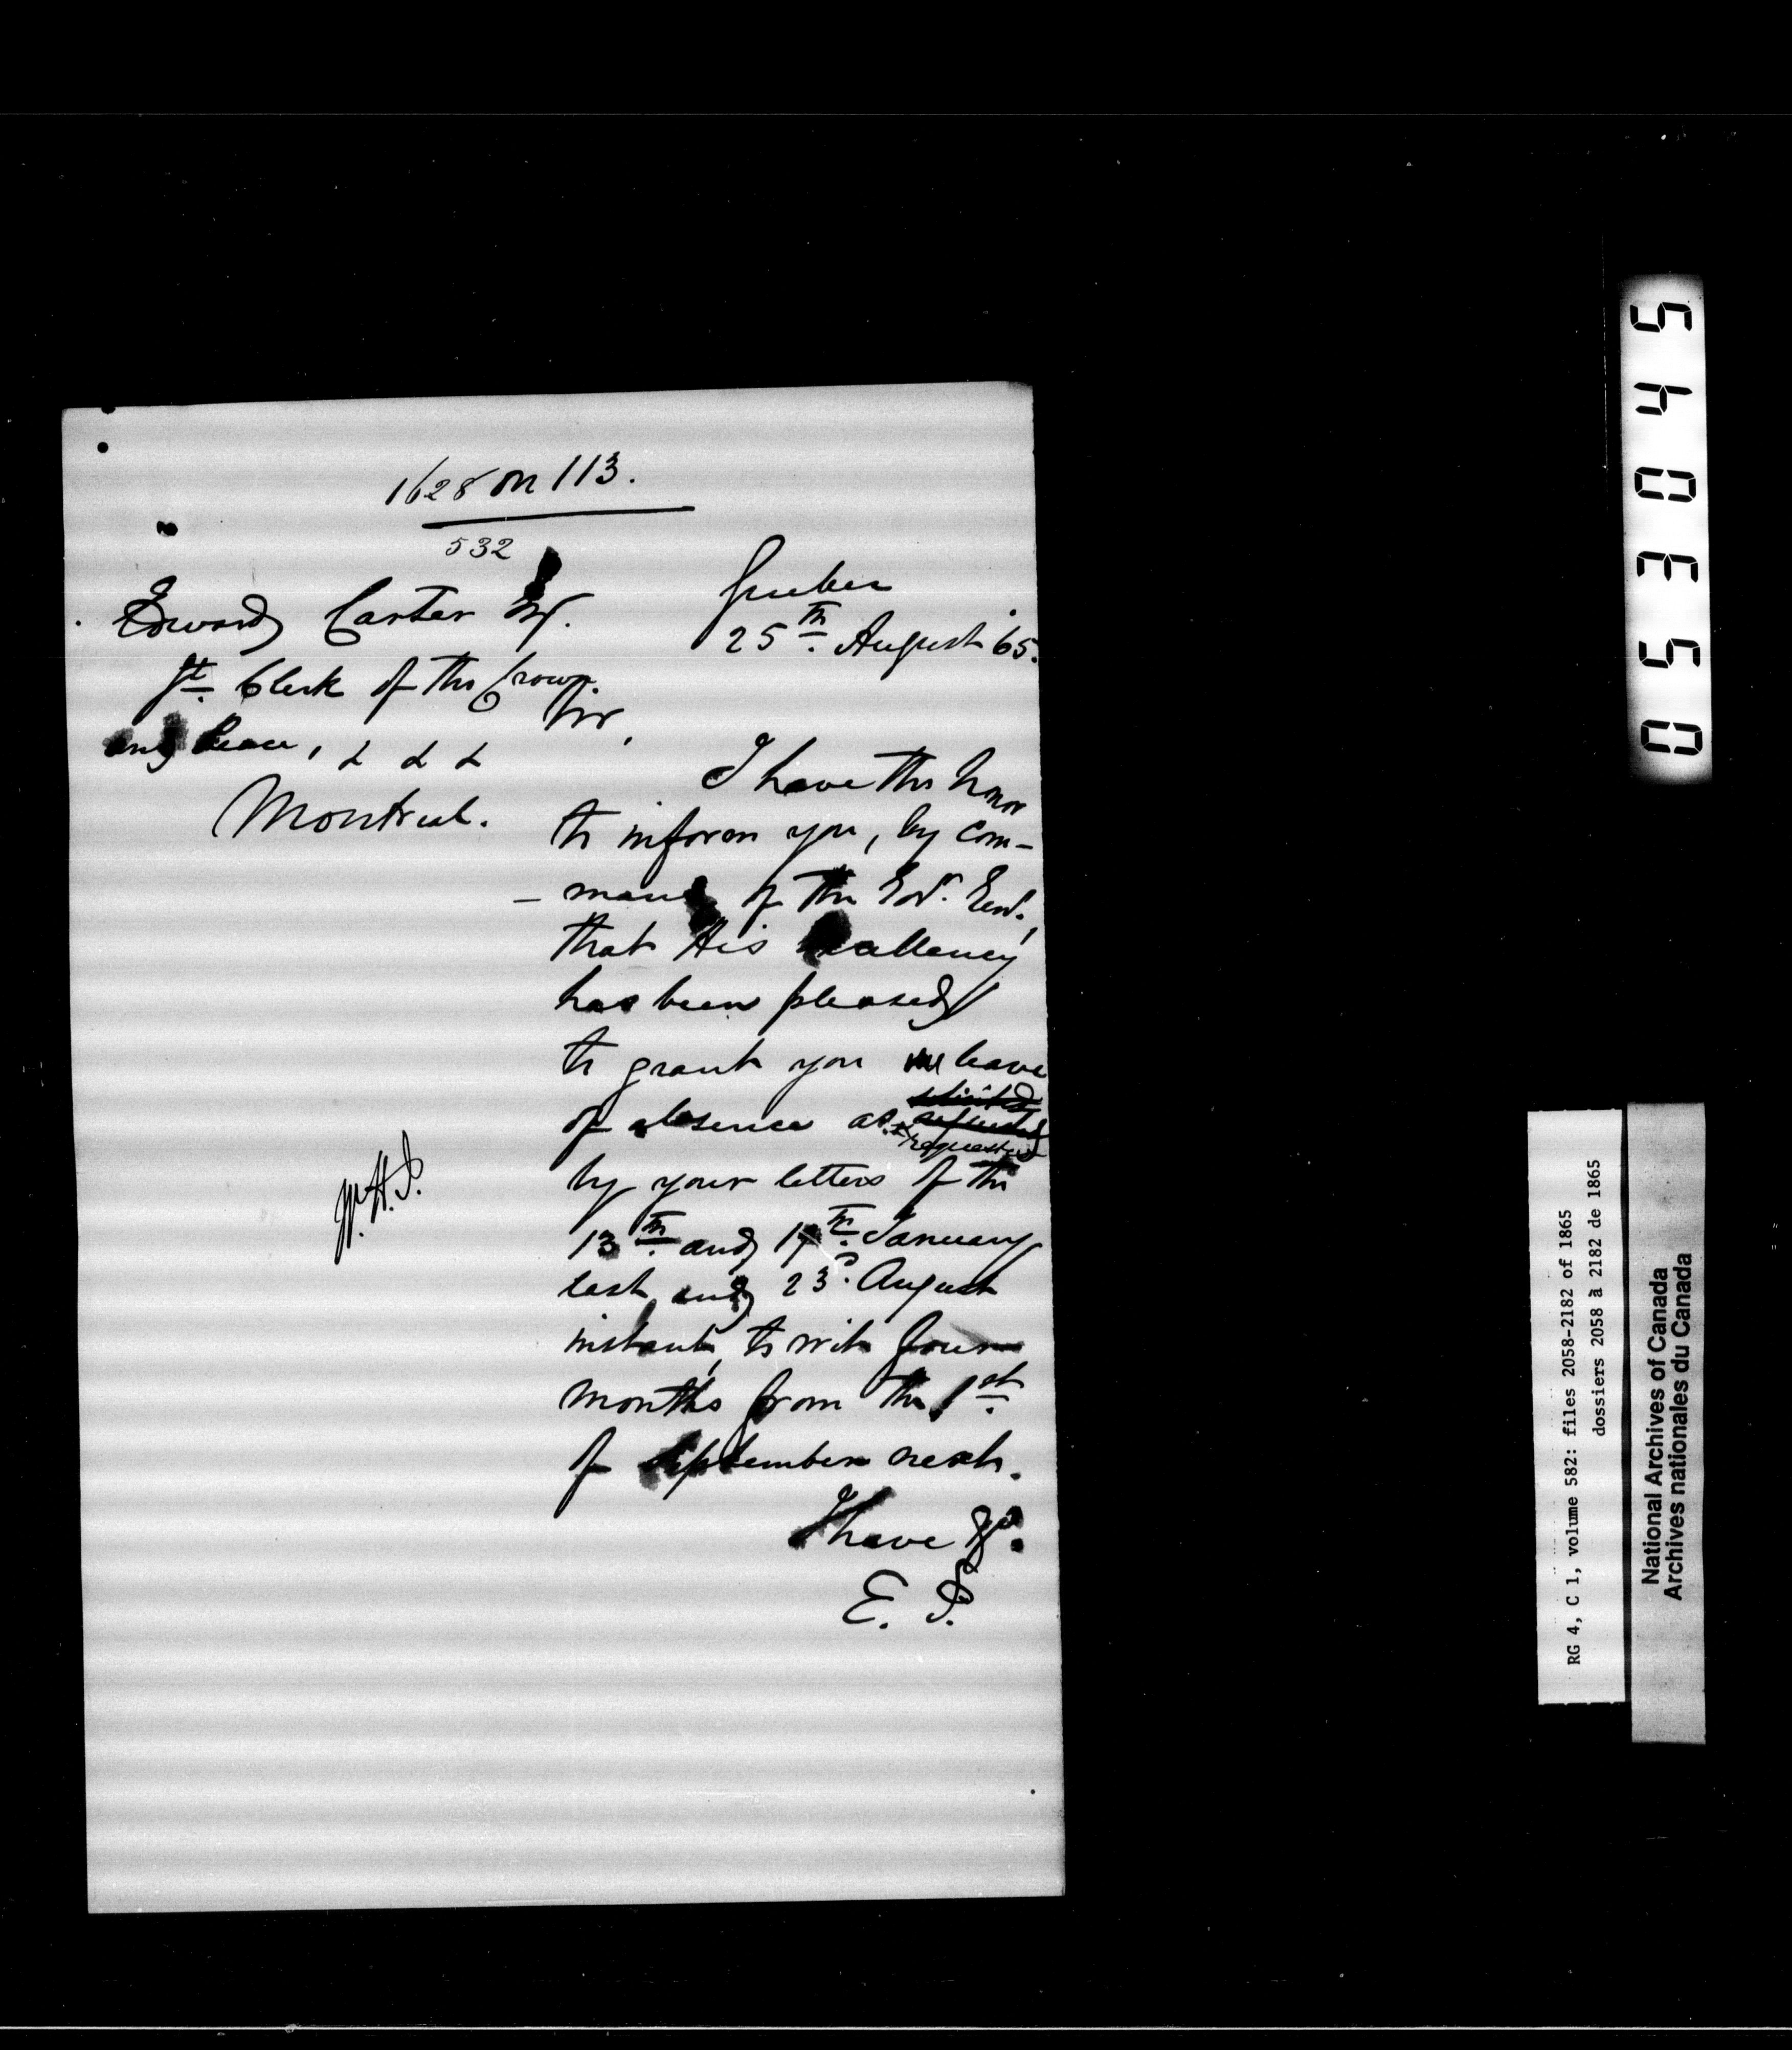 1628 on 113.
532
Quebec
25th August '65.
Edward Carter Esq.
Jt. Clerk of the Crown
and Peace, & & &
Montreal.
Sir,
I have the honor
to inform you, by com-
- mand of the Gov. Genl.,
that His Excellency
has been pleased
to grant you leave
of absence as requested
by your letters of the
13th and 17th January
last and 23d. August
instant, to wit four
months from the 1st
of September next.
I have &c.
E. P.
W.H.J.
54035
0
RG 4, C 1, volume 582: files 2058-2182 of 1865
dossiers 2058 à 2182 de 1865
National Archives of Canada
Archives nationales du Canada